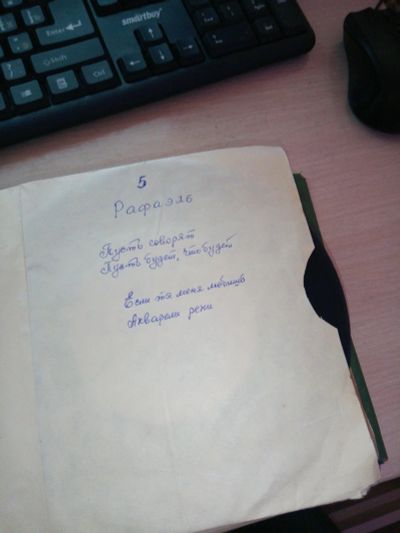 smartbuy
Enter
Shift
Ctrl
5
Рафаэль
Пусть говорят
Пусть будет, что будет
Если ты меня любишь
Акварели реки